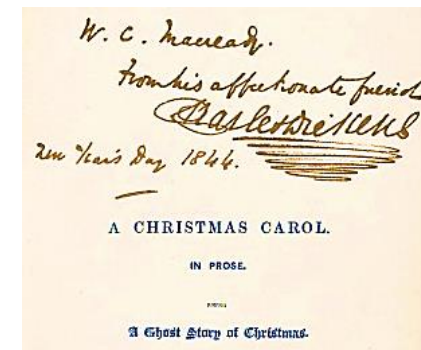 W. C. Macready.
From his affectionate friend
Charles Dickens
New Year's Day 1844.
A CHRISTMAS CAROL.
IN PROSE.
BEING
A Ghost Story of Christmas.